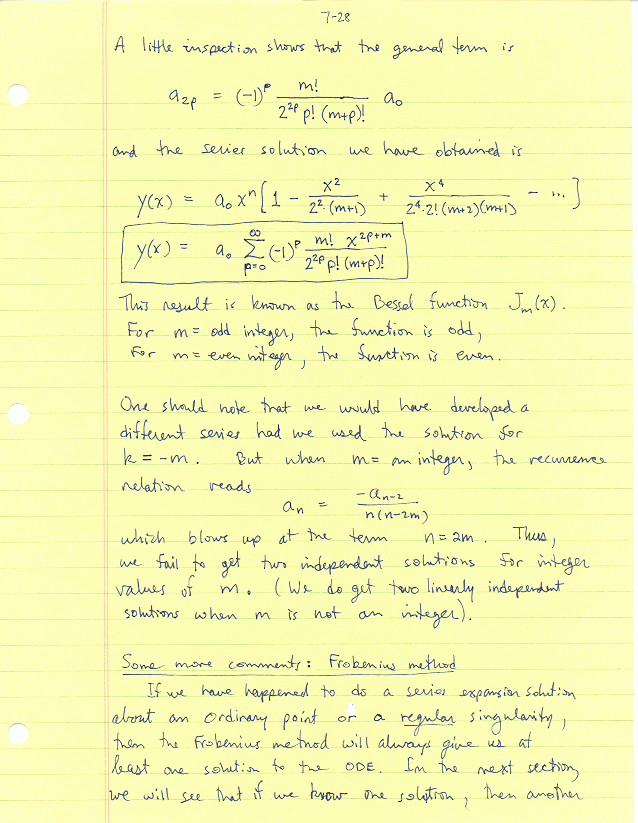 7-28
A little inspection shows that the general term is
a_{2p} = (-1)^p \frac{m!}{2^{2p} p! (m+p)!} a_0
and the series solution we have obtained is
y(x) = a_0 x^n [ 1 - \frac{x^2}{2^2 \cdot (m+1)} + \frac{x^4}{2^4 \cdot 2! (m+2)(m+1)} - ... ]
y(x) = a_0 \sum_{p=0}^{\infty} (-1)^p \frac{m! x^{2p+m}}{2^{2p} p! (m+p)!}
This result is known as the Bessel function J_m(x).
For m = odd integer, the function is odd,
For m = even integer, the function is even.
One should note that we would have developed a
different series had we used the solution for
k = -m. But when m = an integer, the recurrence
relation reads
a_n = \frac{-a_{n-2}}{n(n-2m)}
which blows up at the term n = 2m. Thus,
we fail to get two independent solutions for integer
values of m. (We do get two linearly independent
solutions when m is not an integer).
Some more comments: Frobenius method
If we have happened to do a series expansion solution
about an ordinary point or a regular singularity,
then the Frobenius method will always give us at
least one solution to the ODE. In the next section,
we will see that if we know one solution, then another